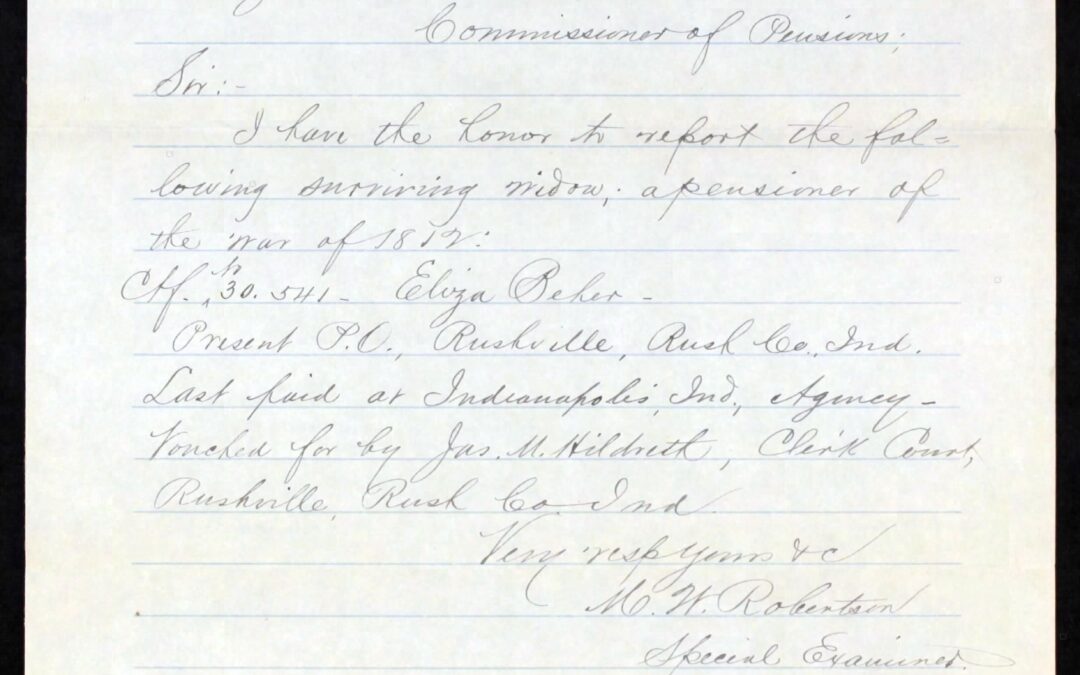 Commissioner of Pensions;
Sir:-
I have the honor to report the fol=
lowing surviving widow; a pensioner of
the war of 1812:
Ctf. No 30.541 - Eliza Beher -
Present P.O., Rushville, Rush Co., Ind.
Last paid at Indianapolis, Ind., Agency -
Vouched for by Jas. M. Hildreth, Clerk Court,
Rushville, Rush Co. Ind.
Very resp yours &c
M. W. Robertson
Special Examiner.